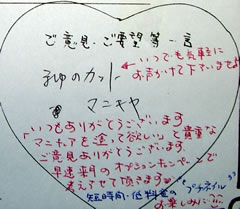 ご意見・ご要望等一言
いつでも気軽に
お声かけて下さいませ
カット
マニキュア
「いつもありがとうございます
マニキュアを塗って欲しい」と貴重な
ご意見ありがとうございます。
早速来月のオプションキャンペーンで
考えさせて頂きます
短時間・低料金の
プチネイル
お楽しみに